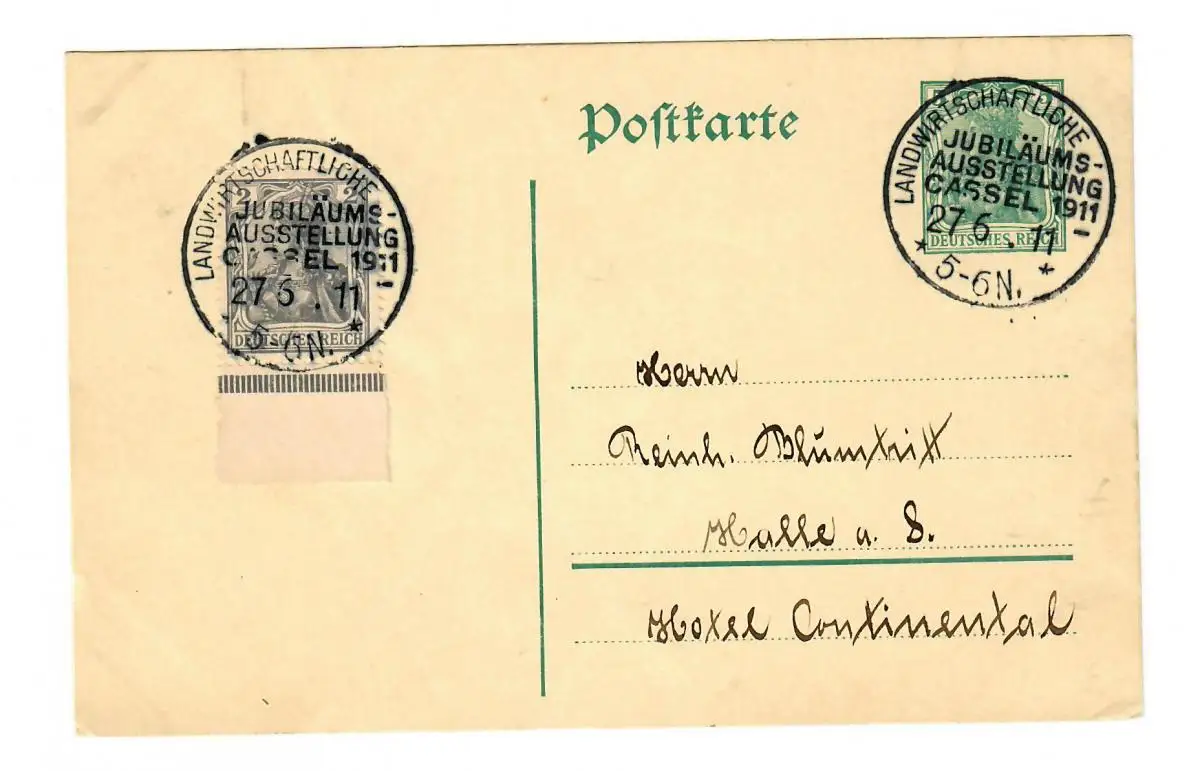 Postkarte
LANDWIRTSCHAFTLICHE
JUBILÄUMS-
AUSSTELLUNG
CASSEL 1911
27 6 . 11
* 5-6N. *
DEUTSCHES REICH
2 2
LANDWIRTSCHAFTLICHE
JUBILÄUMS-
AUSSTELLUNG
CASSEL 1911
27 6 . 11
5-6N. *
DEUTSCHES REICH
Herrn
Reinh. Blumtritt
Halle a. S.
Hotel Continental